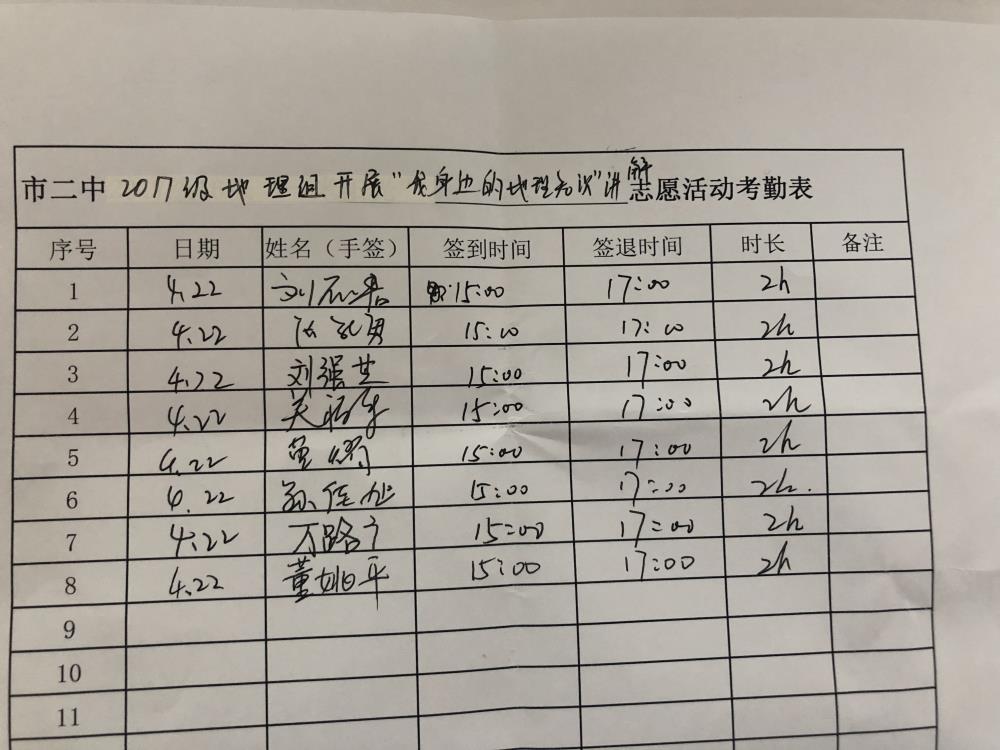 市二中2017级地理组开展“我身边的地理知识”讲解志愿活动考勤表
序号 日期 姓名（手签） 签到时间 签退时间 时长 备注
1 4.22 15:00 17:00 2h
2 4.22 15:00 17:00 2h
3 4.22 刘强芝 15:00 17:00 2h
4 4.22 15:00 17:00 2h
5 4.22 15:00 17:00 2h
6 4.22 15:00 17:00 2h.
7 4.22 万路方 15:00 17:00 2h
8 4.22 董姚平 15:00 17:00 2h
9
10
11